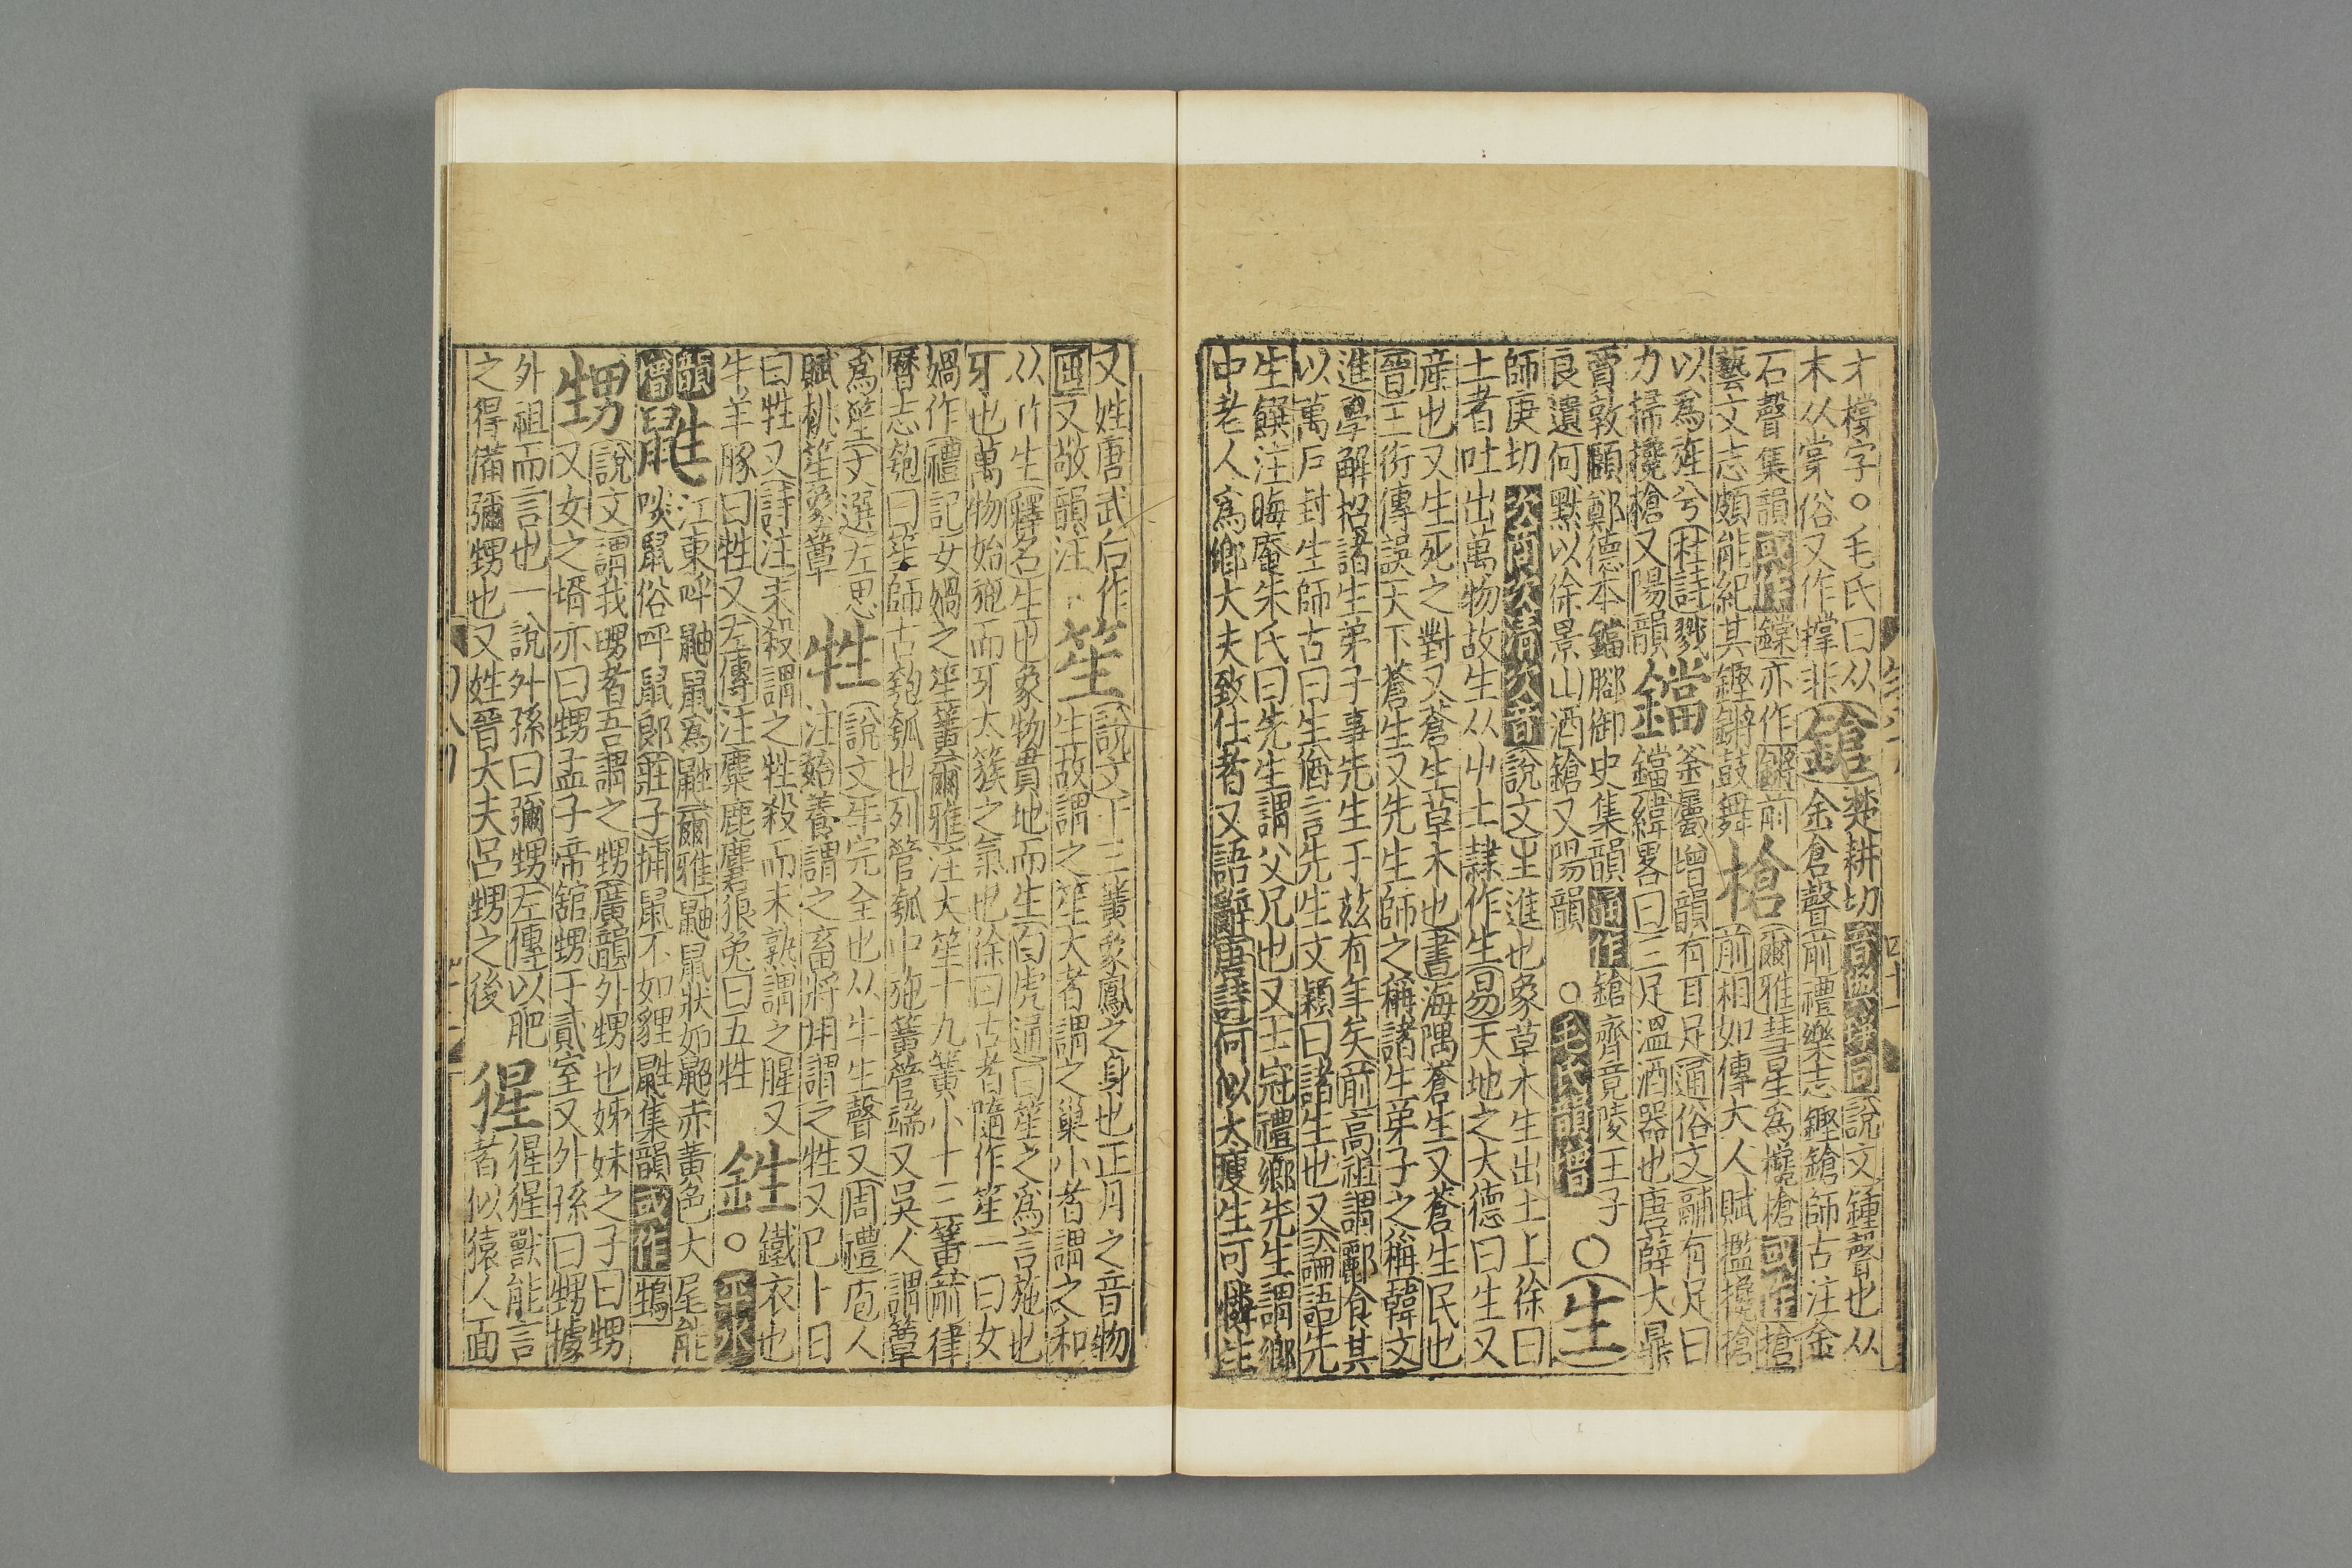 才樘字○毛氏曰从
木从掌俗又作撑非鎗楚耕切音與琤同說文鍾聲也从
石聲集韻或作鏿亦作鏘前金倉聲前禮樂志鏗鎗師古注金
藝文志頗能紀其鏗鏘鼓舞槍爾雅彗星為欃槍或作搶
以為旌兮杜詩戮前相如傳大人賦攬欃搶
力掃攙槍又陽韻鐺釜屬增韻有耳足通俗文鬴有足曰
賈敦頤鄭德本鐺腳御史集韻鐺緯畧曰三足溫酒器也唐薛大鼎
良遺何默以徐景山酒鎗又陽韻通作鎗齊竟陵王子
○毛氏韻增○生
師庚切次商次清次音說文生進也象草木生出土上徐曰
土者吐出萬物故生从屮土隸作生易天地之大德曰生又
産也又生死之對又蒼生草木也書海隅蒼生又蒼生民也
晉王衍傳誤天下蒼生又先生師之稱諸生弟子之稱韓文
進學解招諸生弟子事先生于茲有年矣前高祖謂酈食其
以萬戶封生師古曰生猶言先生文穎曰諸生也又論語先
生饌注晦庵朱氏曰先生謂父兄也又士冠禮鄉先生謂鄉
中老人為鄉大夫致仕者又語辭唐詩何似太瘦生可憐生
又姓唐武后作
𠥱又敬韻注笙說文十三簧象鳳之身也正月之音物
从竹生釋名生也象物貫地而生白虎通曰笙之為言施也
生故謂之笙大者謂之巢小者謂之和
牙也萬物始施而牙太簇之氣也徐曰古者隨作笙一曰女
媧作禮記女媧之笙簧爾雅注大笙十九簧小十三簧前律
曆志匏曰笙師古匏瓠也列管瓠中施簧管端又吳人謂簟
為笙文選左思
賦桃笙象簟牲說文牛完全也从牛生聲又周禮庖人
注始養謂之畜將用謂之牲又巳卜日
曰牲又詩注未殺謂之牲殺而未熟謂之腥又
牛羊豚曰牲又左傳注麋鹿麞狼兔曰五牲鉎鐵衣也
○平水
韻增鼪江東呼鼬鼠為鼪爾雅鼬鼠狀如鼦赤黃色大尾能
啖鼠俗呼鼠郎莊子捕鼠不如貍鼪集韻或作鵿
甥說文謂我甥者吾謂之甥廣韻外甥也姊妹之子曰甥
又女之壻亦曰甥孟子帝舘甥于貳室又外孫曰甥據
外祖而言也一說外孫曰彌甥左傳以肥
之得備彌甥也又姓晉大夫呂甥之後猩猩猩獸能言
者似猿人面